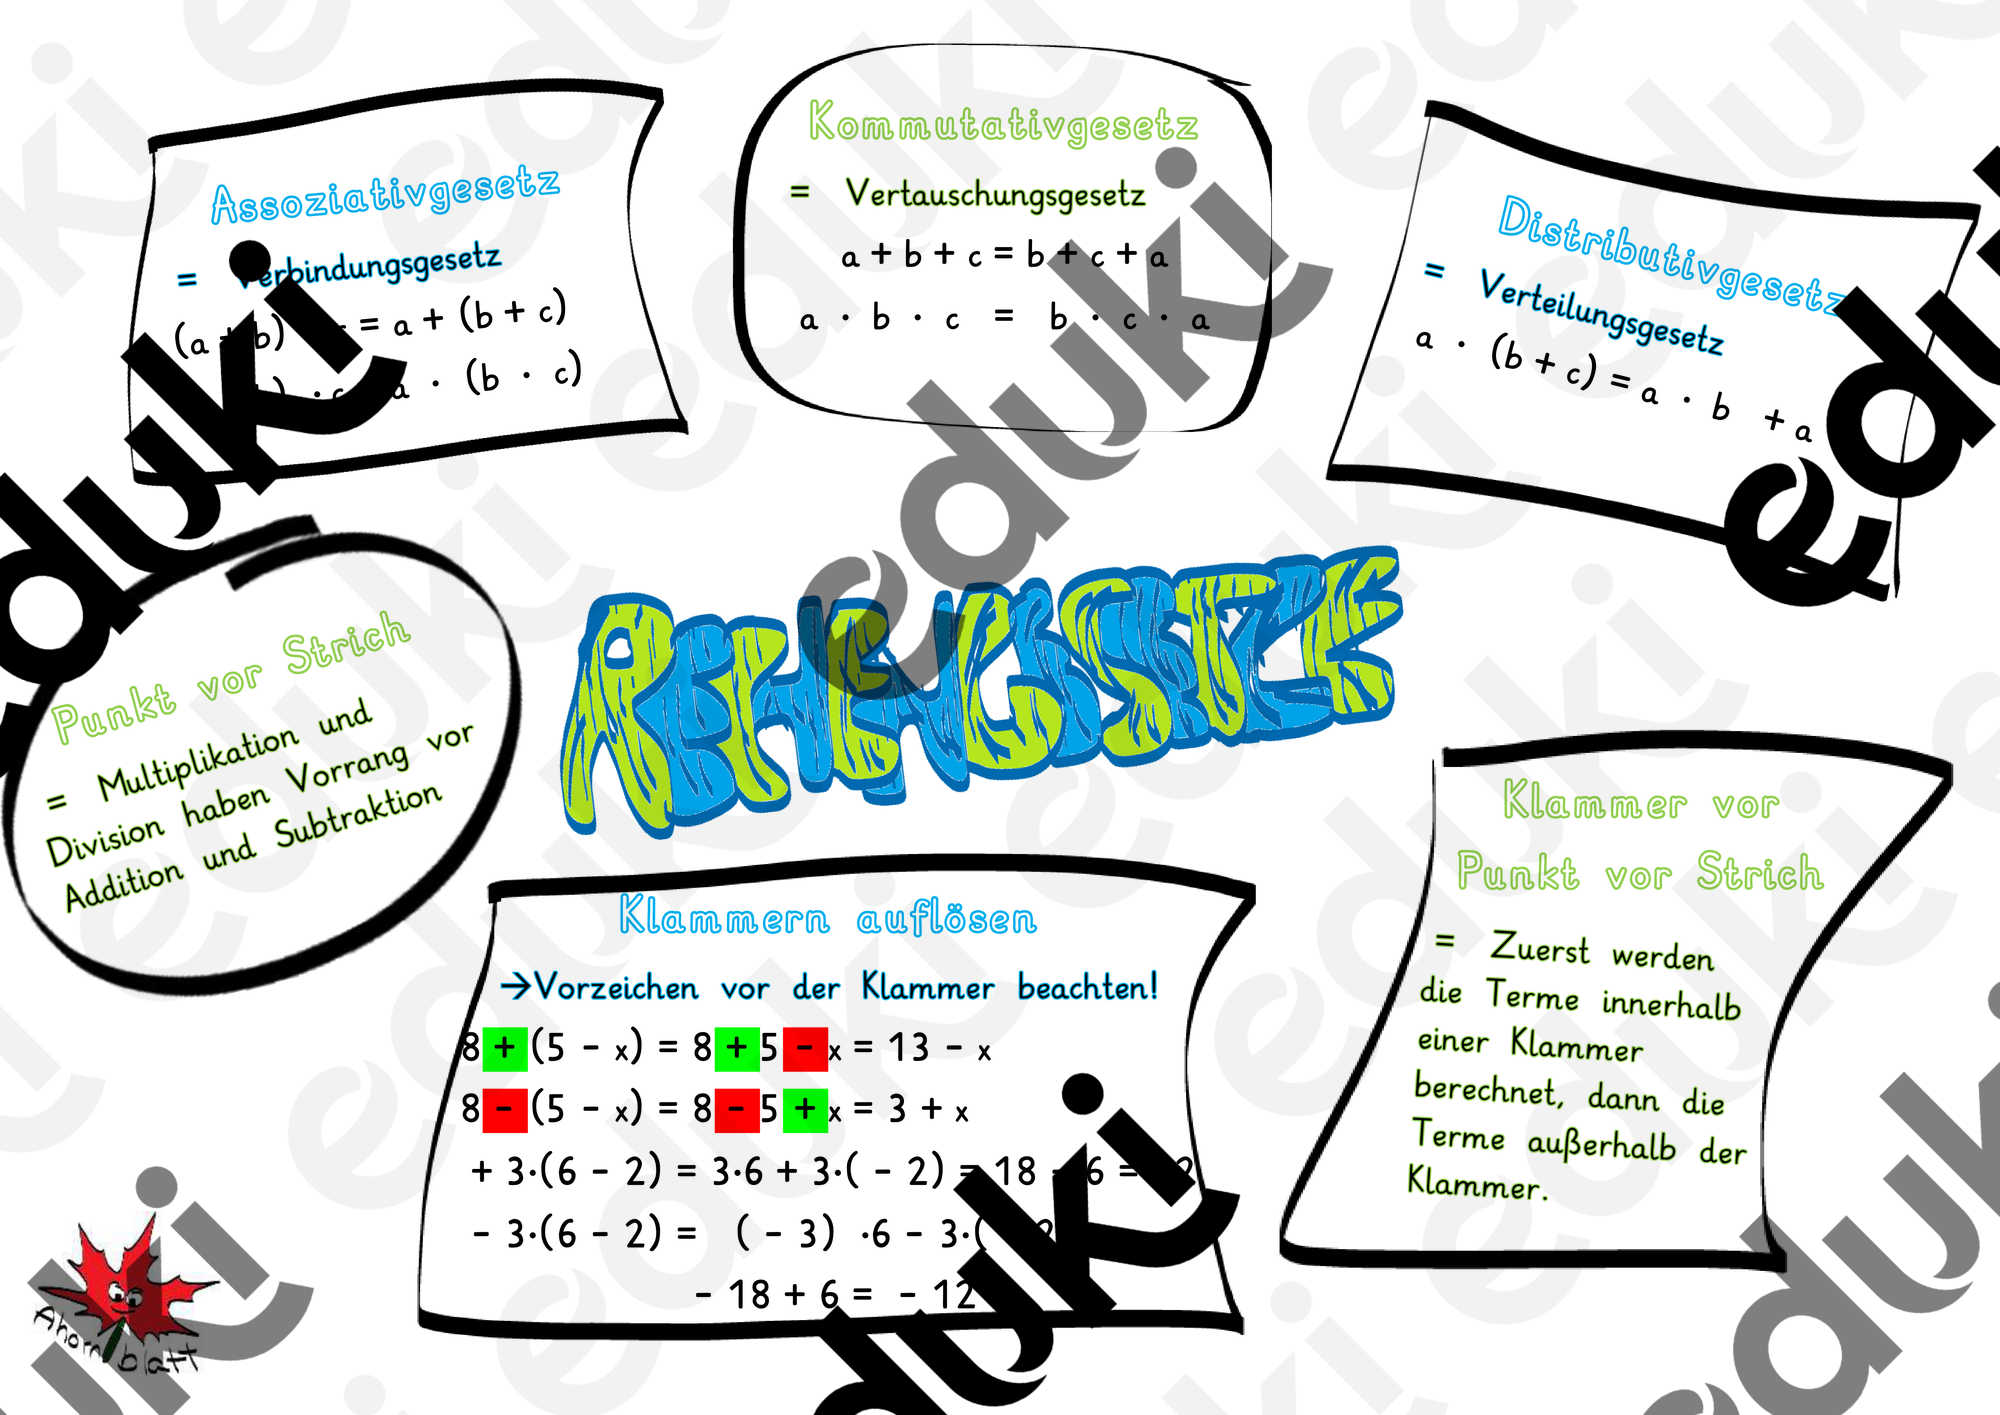 Assoziativgesetz
= Verbindungsgesetz
(a + b) = a + (b + c)
) · c a · (b · c)
Kommutativgesetz
= Vertauschungsgesetz
a + b + c = b + c + a
a · b · c = b · c · a
Distributivgesetz
= Verteilungsgesetz
a · (b + c) = a · b + a
Punkt vor Strich
= Multiplikation und
Division haben Vorrang vor
Addition und Subtraktion
Klammern auflösen
→Vorzeichen vor der Klammer beachten!
8 + (5 - x) = 8 + 5 - x = 13 - x
8 - (5 - x) = 8 - 5 + x = 3 + x
+ 3·(6 - 2) = 3·6 + 3·( - 2) = 18 - 6 =
- 3·(6 - 2) = ( - 3) ·6 - 3·(
- 18 + 6 = - 12
Klammer vor
Punkt vor Strich
= Zuerst werden
die Terme innerhalb
einer Klammer
berechnet, dann die
Terme außerhalb der
Klammer.
Ahornblatt
eduki
eduki
eduki